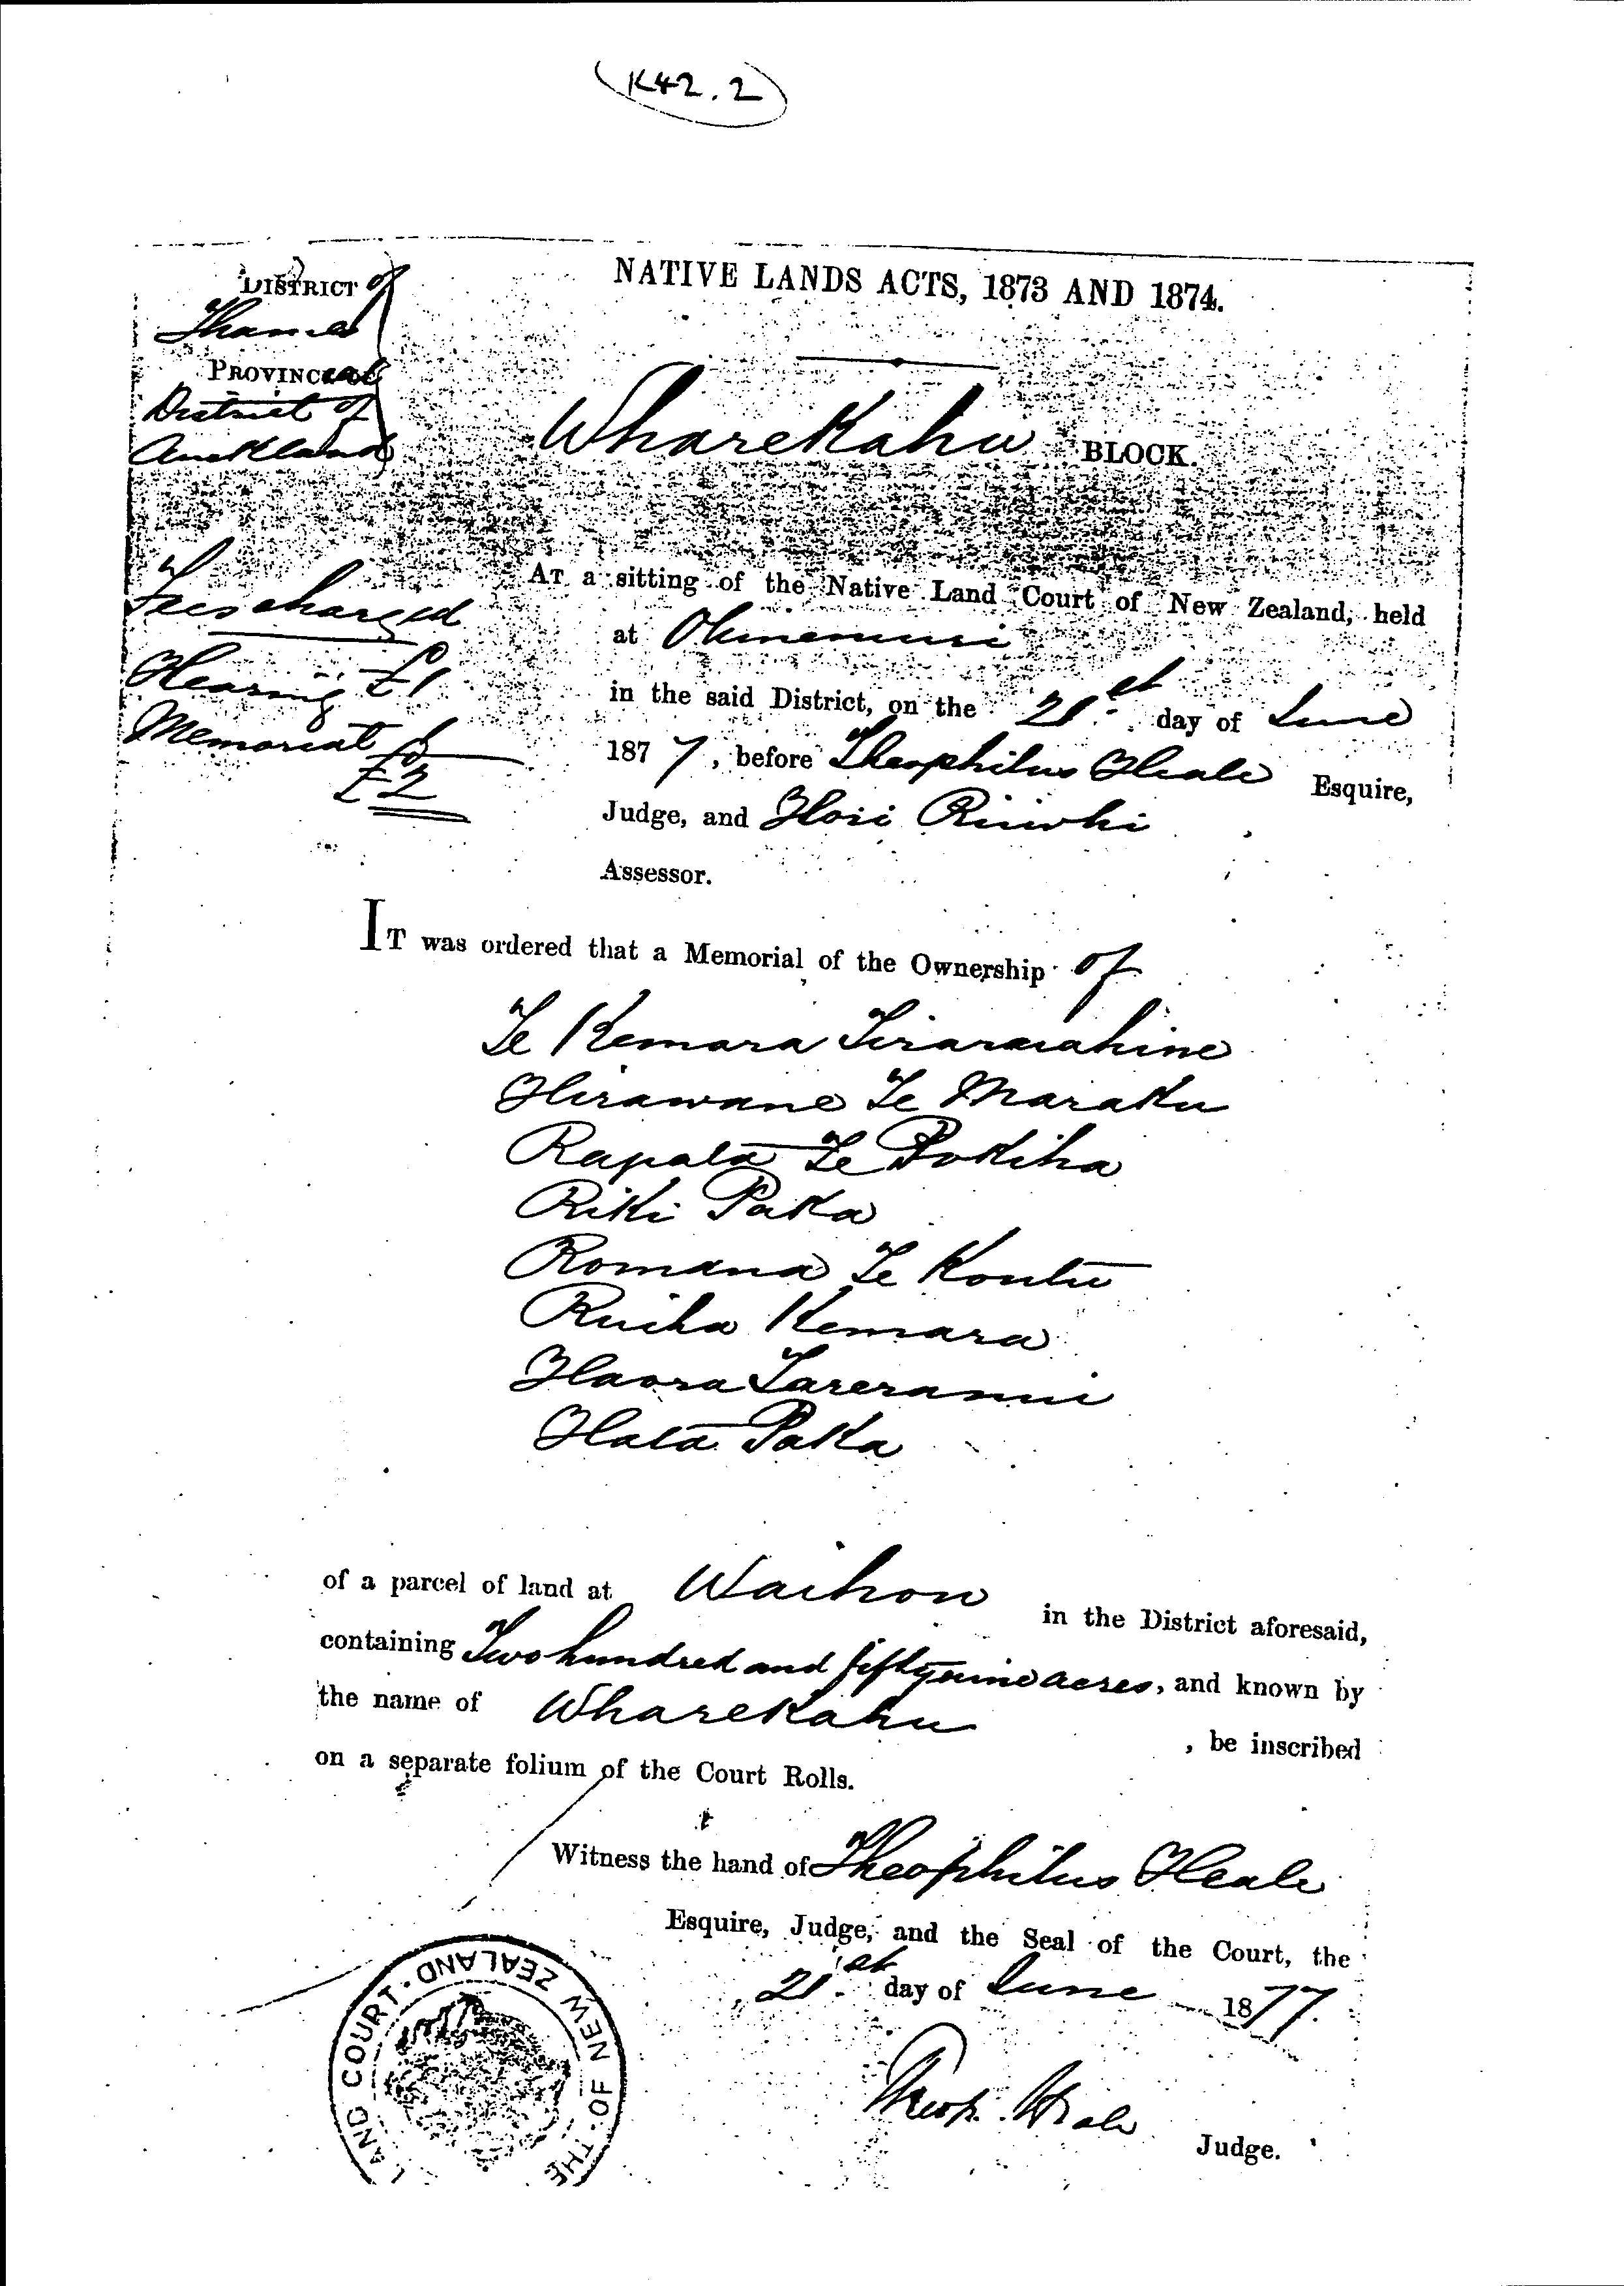 K42.2
NATIVE LANDS ACTS, 1873 AND 1874.
DISTRICT of
Thames
PROVINCIAL
District of
Auckland
WhareKahu BLOCK.
Fees charged
Hearing £1
Memorial £1
£2
AT a sitting of the Native Land Court of New Zealand, held
at Ohinemuri
in the said District, on the 21st day of June
1877, before Theophilus Heale Esquire,
Judge, and Hori Riiwhi
Assessor.
IT was ordered that a Memorial of the Ownership of
Te Kemara Tirarauahine
Hirawana Te Maraku
Rapata Te Pokiha
Riki Paka
Romana Te Koutu
Ruiha Kemara
Haora Tareranui
Hata Paka
of a parcel of land at Waihou in the District aforesaid,
containing Two hundred and fifty nine acres, and known by
the name of WhareKahu , be inscribed
on a separate folium of the Court Rolls.
Witness the hand of Theophilus Heale
Esquire, Judge, and the Seal of the Court, the
21st day of June 1877.
Theop. Heale
Judge.
LAND COURT. OF NEW ZEALAND. THE